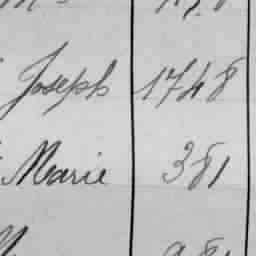 Joseph 1748
Marie 381